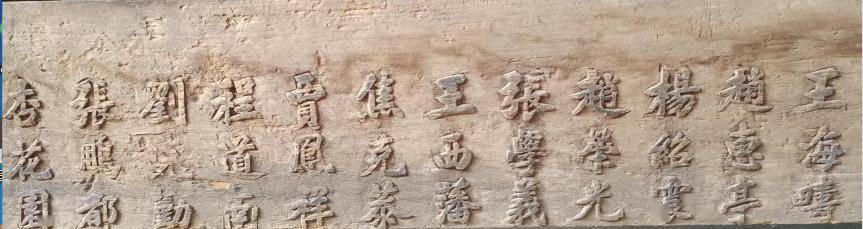 王海疇
趙惠亭
楊
趙榮光
張學義
王西藩
焦克泰
賈鳳祥
程道南
劉克勤
張鵬都
杏花園